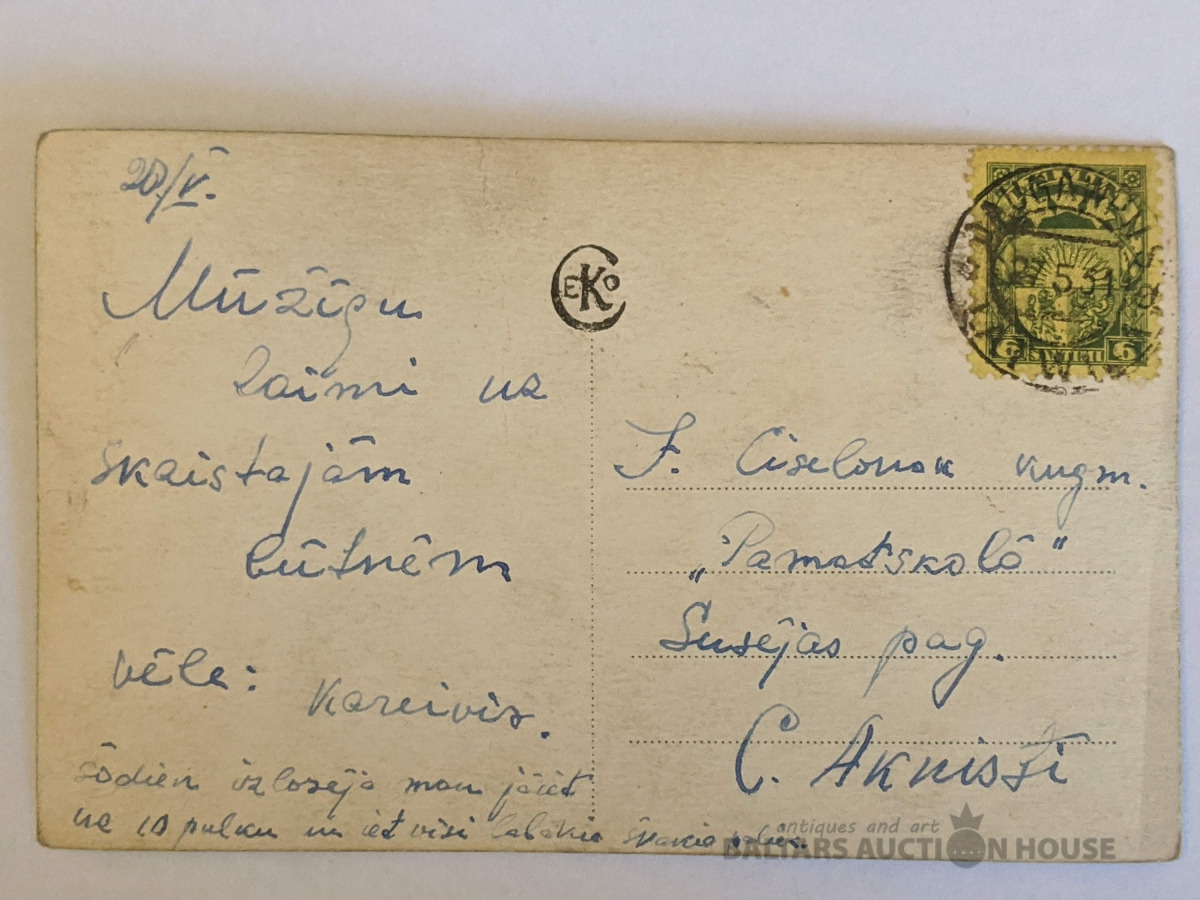 20/V.
Mūžīgu
laimi uz
skaistajām
būtnēm
vēle:
Kareivis.
šodien izlozēja man jāiet
uz 10 pulku un iet visi labākie
EKO
LATVIJA
5.31
6 SANTIMI 6
J. Ciselonok kugm.
„Pamatskolā"
Susējas pag.
C. Aknisti
antiques and art
BALTARS AUCTION HOUSE